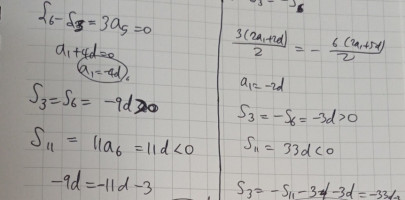 S₆-S₃=3a₅=0
a₁+4d=0
a₁=-4d
S₃=S₆=-9d>0
S₁₁=11a₆=11d<0
-9d=-11d-3
3(2a₁+2d)/2=-6(2a₁+5d)/2
a₁=-2d
S₃=-S₆=-3d>0
S₁₁=33d<0
S₃=-S₁₁-3 -3d=-33d-